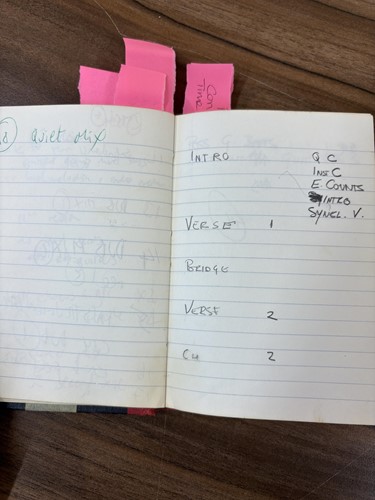 Con
Time
Quiet Mix
INTRO Q C
INS C
E. COUNTS
INTRO
SYNCL. V.
VERSE 1
BRIDGE
VERSE 2
CH 2